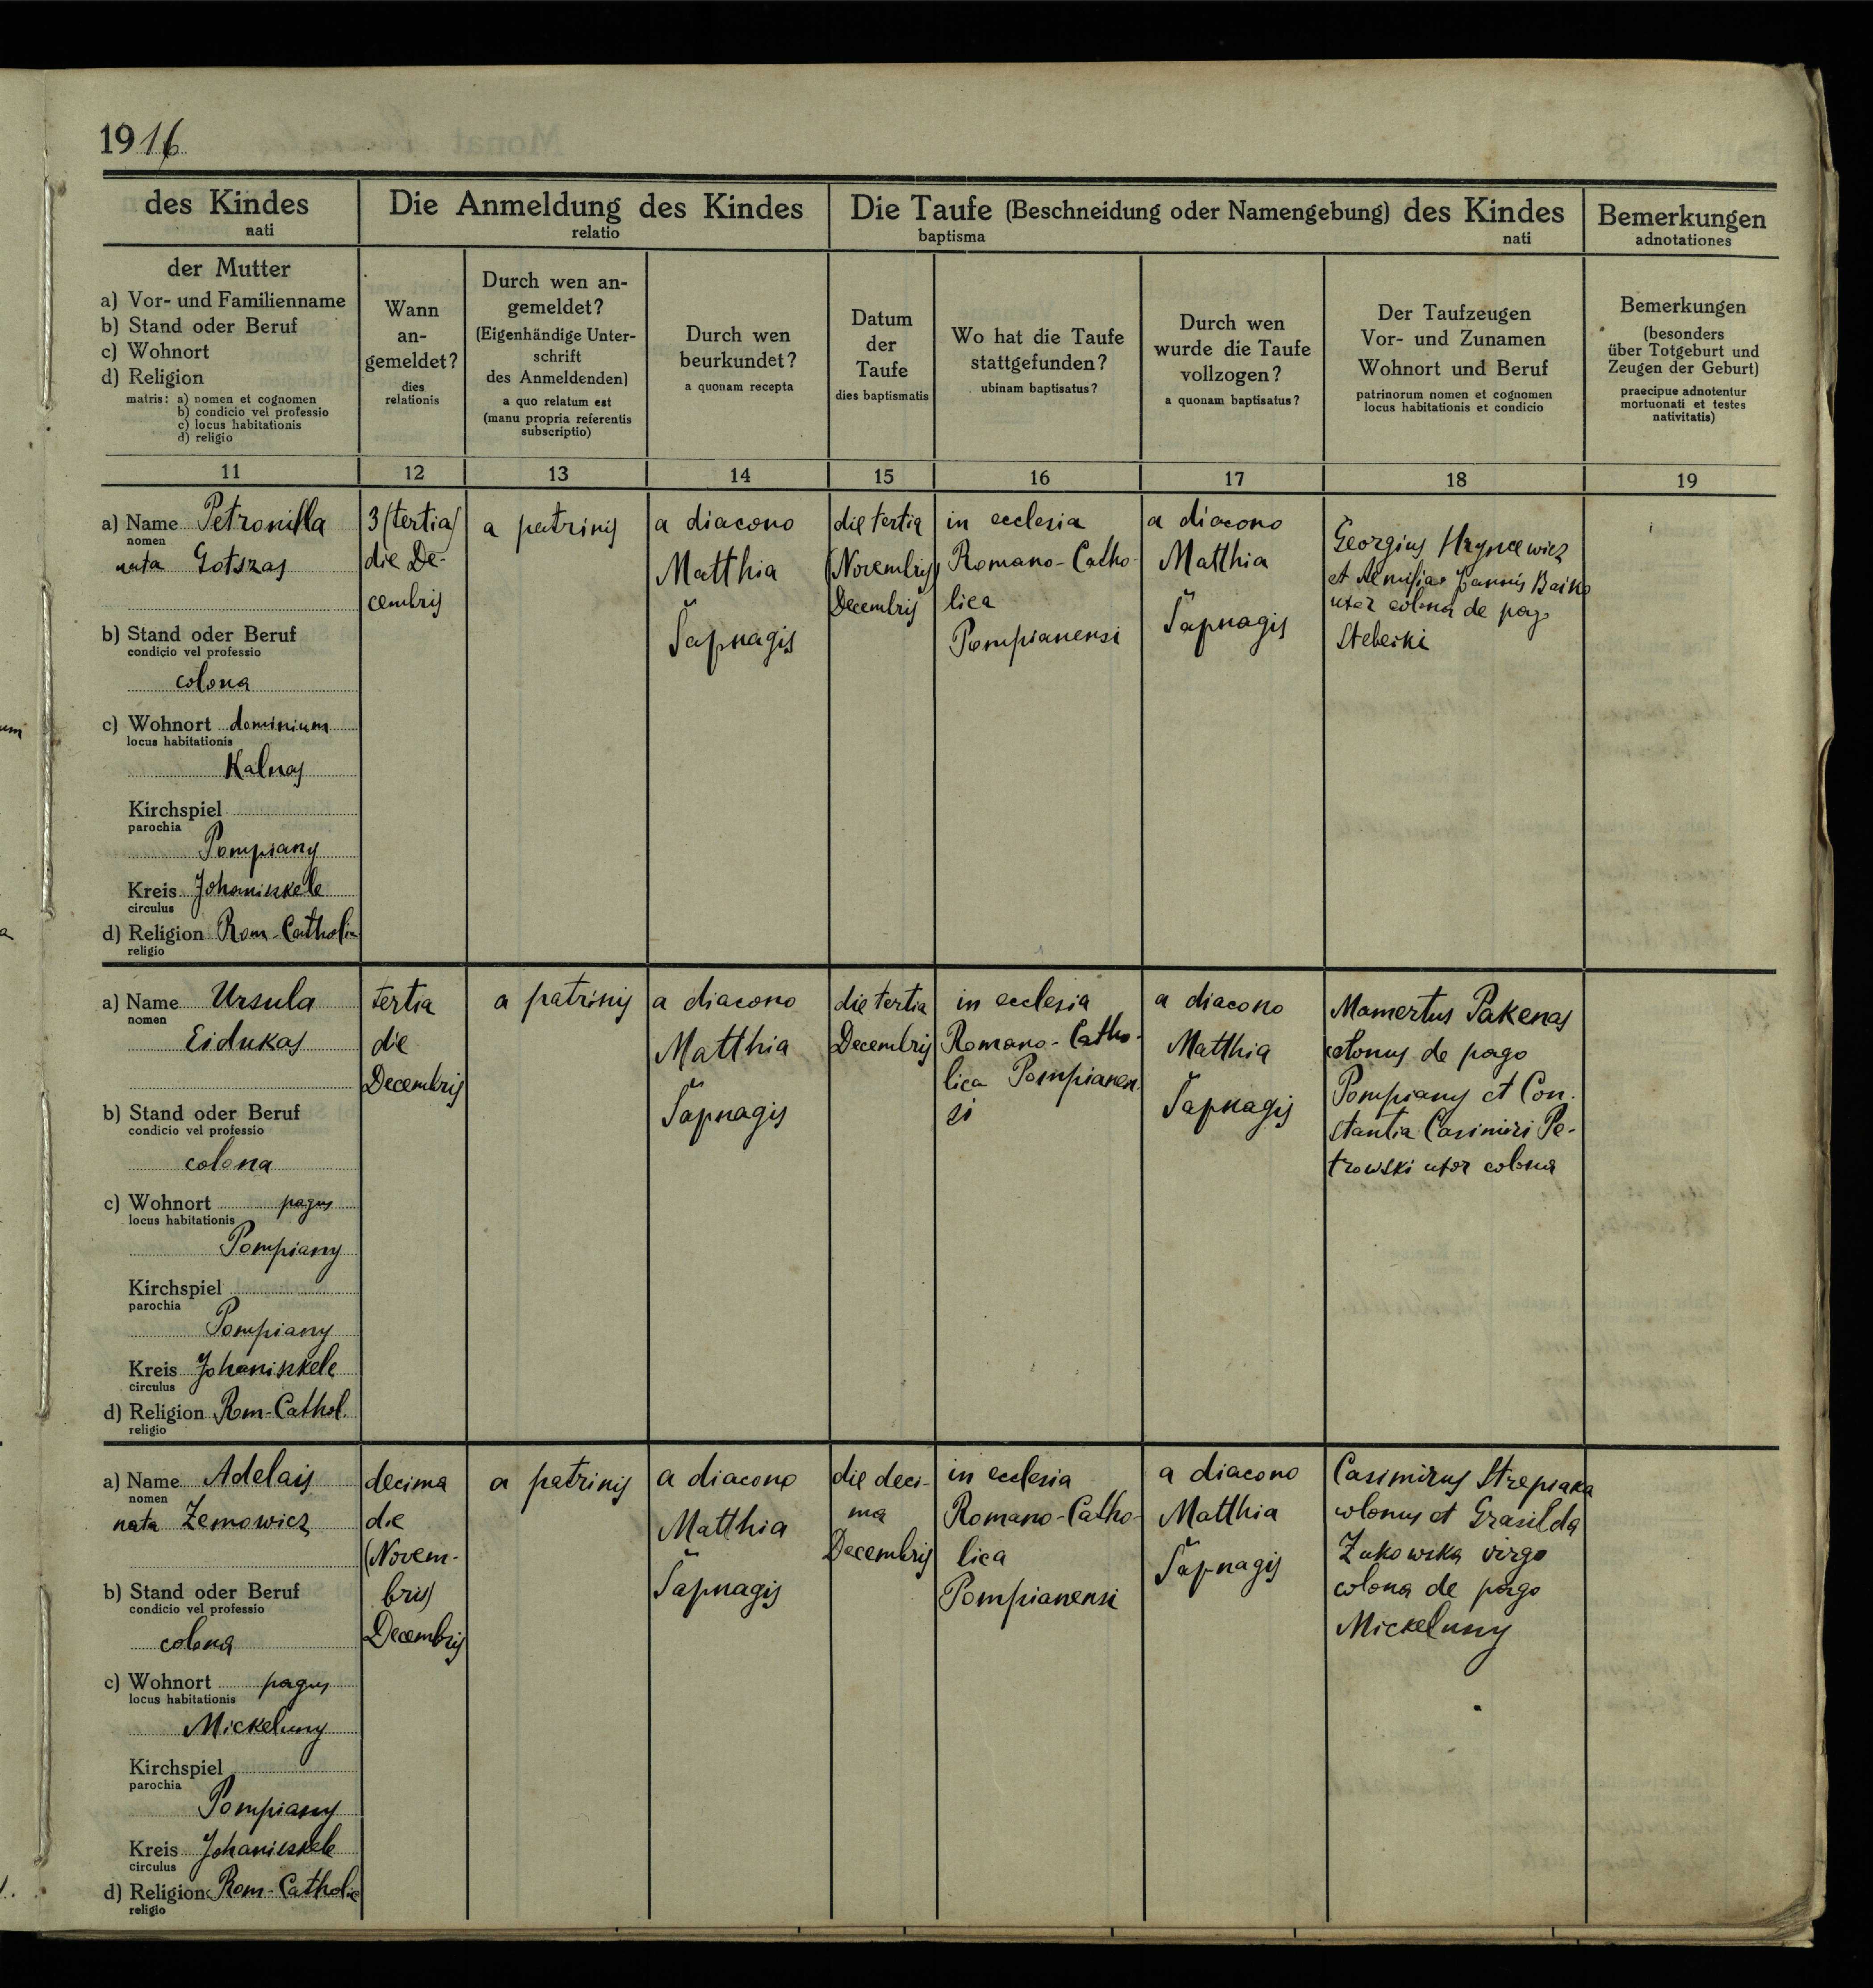 1916
des Kindes
nati
Die Anmeldung des Kindes
relatio
Die Taufe (Beschneidung oder Namengebung) des Kindes
baptisma nati
Bemerkungen
adnotationes
der Mutter
a) Vor- und Familienname
b) Stand oder Beruf
c) Wohnort
d) Religion
matris: a) nomen et cognomen
b) condicio vel professio
c) locus habitationis
d) religio
Wann
an-
gemeldet?
dies
relationis
Durch wen an-
gemeldet?
(Eigenhändige Unter-
schrift
des Anmeldenden)
a quo relatum est
(manu propria referentis
subscriptio)
Durch wen
beurkundet?
a quonam recepta
Datum
der
Taufe
dies baptismatis
Wo hat die Taufe
stattgefunden?
ubinam baptisatus?
Durch wen
wurde die Taufe
vollzogen?
a quonam baptisatus?
Der Taufzeugen
Vor- und Zunamen
Wohnort und Beruf
patrinorum nomen et cognomen
locus habitationis et condicio
Bemerkungen
(besonders
über Totgeburt und
Zeugen der Geburt)
praecipue adnotentur
mortuonati et testes
nativitatis)
11 12 13 14 15 16 17 18 19
a) Name Petronilla
nomen
nata Gotszas
b) Stand oder Beruf
condicio vel professio
colona
c) Wohnort dominium
locus habitationis
Kalnas
Kirchspiel
parochia
Pompiany
Kreis Johaniszkele
circulus
d) Religion Rom-Catholic
religio
3 (tertia)
die De-
cembris
a patrinis
a diacono
Matthia
Šapnagis
die tertia
(Novembris)
Decembris
in ecclesia
Romano-Catho-
lica
Pompianensi
a diacono
Matthia
Šapnagis
Georgius Hryncewicz
et Jannis
uxor colona de pago
Stebeiki
a) Name Ursula
nomen
Eidukas
b) Stand oder Beruf
condicio vel professio
colona
c) Wohnort pagus
locus habitationis
Pompiany
Kirchspiel
parochia
Pompiany
Kreis Johaniszkele
circulus
d) Religion Rom-Cathol.
religio
tertia
die
Decembris
a patrinis
a diacono
Matthia
Šapnagis
die tertia
Decembris
in ecclesia
Romano-Catho-
lica Pompianen-
si
a diacono
Matthia
Šapnagis
Mamertus Pakenas
colonus de pago
Pompiany et Con-
stantia Casimiri Pe-
trowski uxor colona
a) Name Adelais
nomen
nata Zemowicz
b) Stand oder Beruf
condicio vel professio
colona
c) Wohnort pagus
locus habitationis
Mickeluny
Kirchspiel
parochia
Pompiany
Kreis Johaniszkele
circulus
d) Religion Rom-Catholic
religio
decima
die
(Novem-
bris)
Decembris
a patrinis
a diacono
Matthia
Šapnagis
die deci-
ma
Decembris
in ecclesia
Romano-Catho-
lica
Pompianensi
a diacono
Matthia
Šapnagis
Casimirus Strepiaka
colonus et Grasilda
Zukowska virgo
colona de pago
Mickeluny